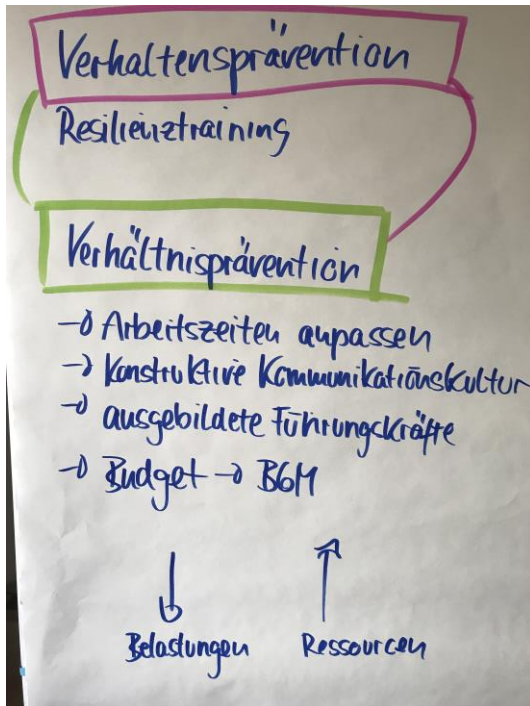 Verhaltensprävention
Resilienztraining
Verhältnisprävention
→ Arbeitszeiten anpassen
→ Konstruktive Kommunikationskultur
→ ausgebildete Führungskräfte
→ Budget → BGM
↓ ↑
Belastungen Ressourcen